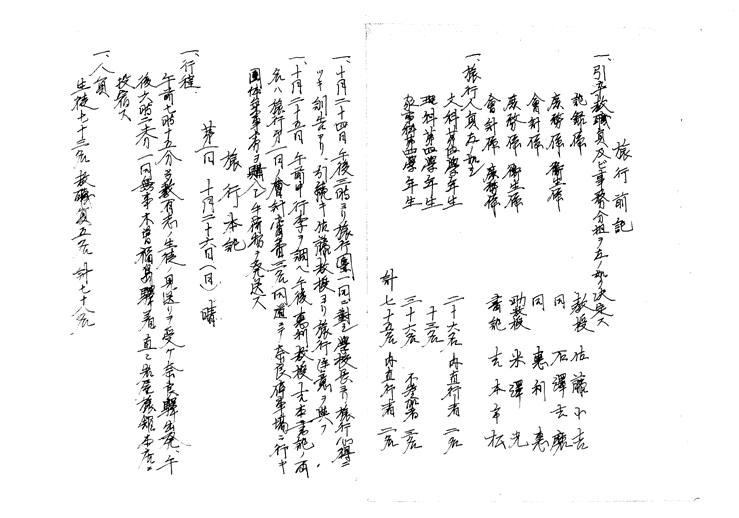 旅行前記
一、引率教職員及仕事分担ヲ左ノ如ク決定ス
記録係 教授 佐藤小吉
庶務係 衛生係 同 石澤吉磨
会計係 同 惠利惠
庶務係 衛生係 助教授 米澤光
會計係 庶務係 書記 吉本幸松
一、旅行人員左ノ如シ
文科第四學年生 二十六名 内直行者 一名
理科第四學年生 十三名
家事科第四學年生 三十六名 不参加者 一名
計 七十五名 内直行者 一名
一、十月二十四日 午後二時ヨリ旅行團一同ニ對シ學校長ヨリ旅行心得ニ
ツキ訓告アリ、引続キ佐藤教授ヨリ旅行注意ヲ與フ、
一、十月二十五日 午前中行李ヲ調ヘ午後惠利教授、吉本書記ノ両
名ハ旅行第一日ノ會計當番三名同道ニテ奈良停車場ニ行キ
團体乗車券ヲ購入シ手荷物ヲ発送ス
旅行本記
第一日 十月二十六日(月) 晴
一、行程
午前七時十五分多数有志ノ生徒ノ見送リヲ受ケ奈良驛出発、午
後六時二十六分一同無事木曽福島驛着直ニ岩屋旅館本店ニ
投宿ス
一、人員
生徒七十三名 教職員五名 計七十八名